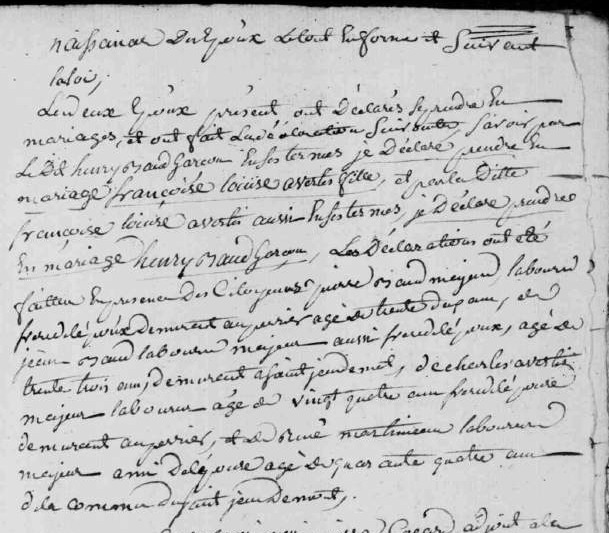 naissance du Epoux Le tout En forme et Suivent
la loi,
Les deux Epoux présent ont Déclarés se prendre En
mariages, et ont fait La déclaration Suivante, Savoir par
Le Dt henry Garcon En ses termes je Déclare prendre En
mariage françoise loüise avertis fille, et par la Ditte
françoise loüise avertis aussi En ses termes, je Déclare prendre
En mariage henry Garcon, Les Déclarations ont été
faitte En presence Des Citoyens pierre majeur laboureur
frere de Lépoux demeurent au perrier agé de trente ans, de
jean laboureur majeur aussi frere de lépoux, agé de
trente trois ans, demeurent a saint jean demont, de charles avertis
majeur laboureur agé de vingt quatre ans frere de lépouse
demeurant au perrier, et de René martineau laboureur
majeur ami De lépouse agé de quarante quatre ans
de la commune du saint jean demont,
adjoint a la